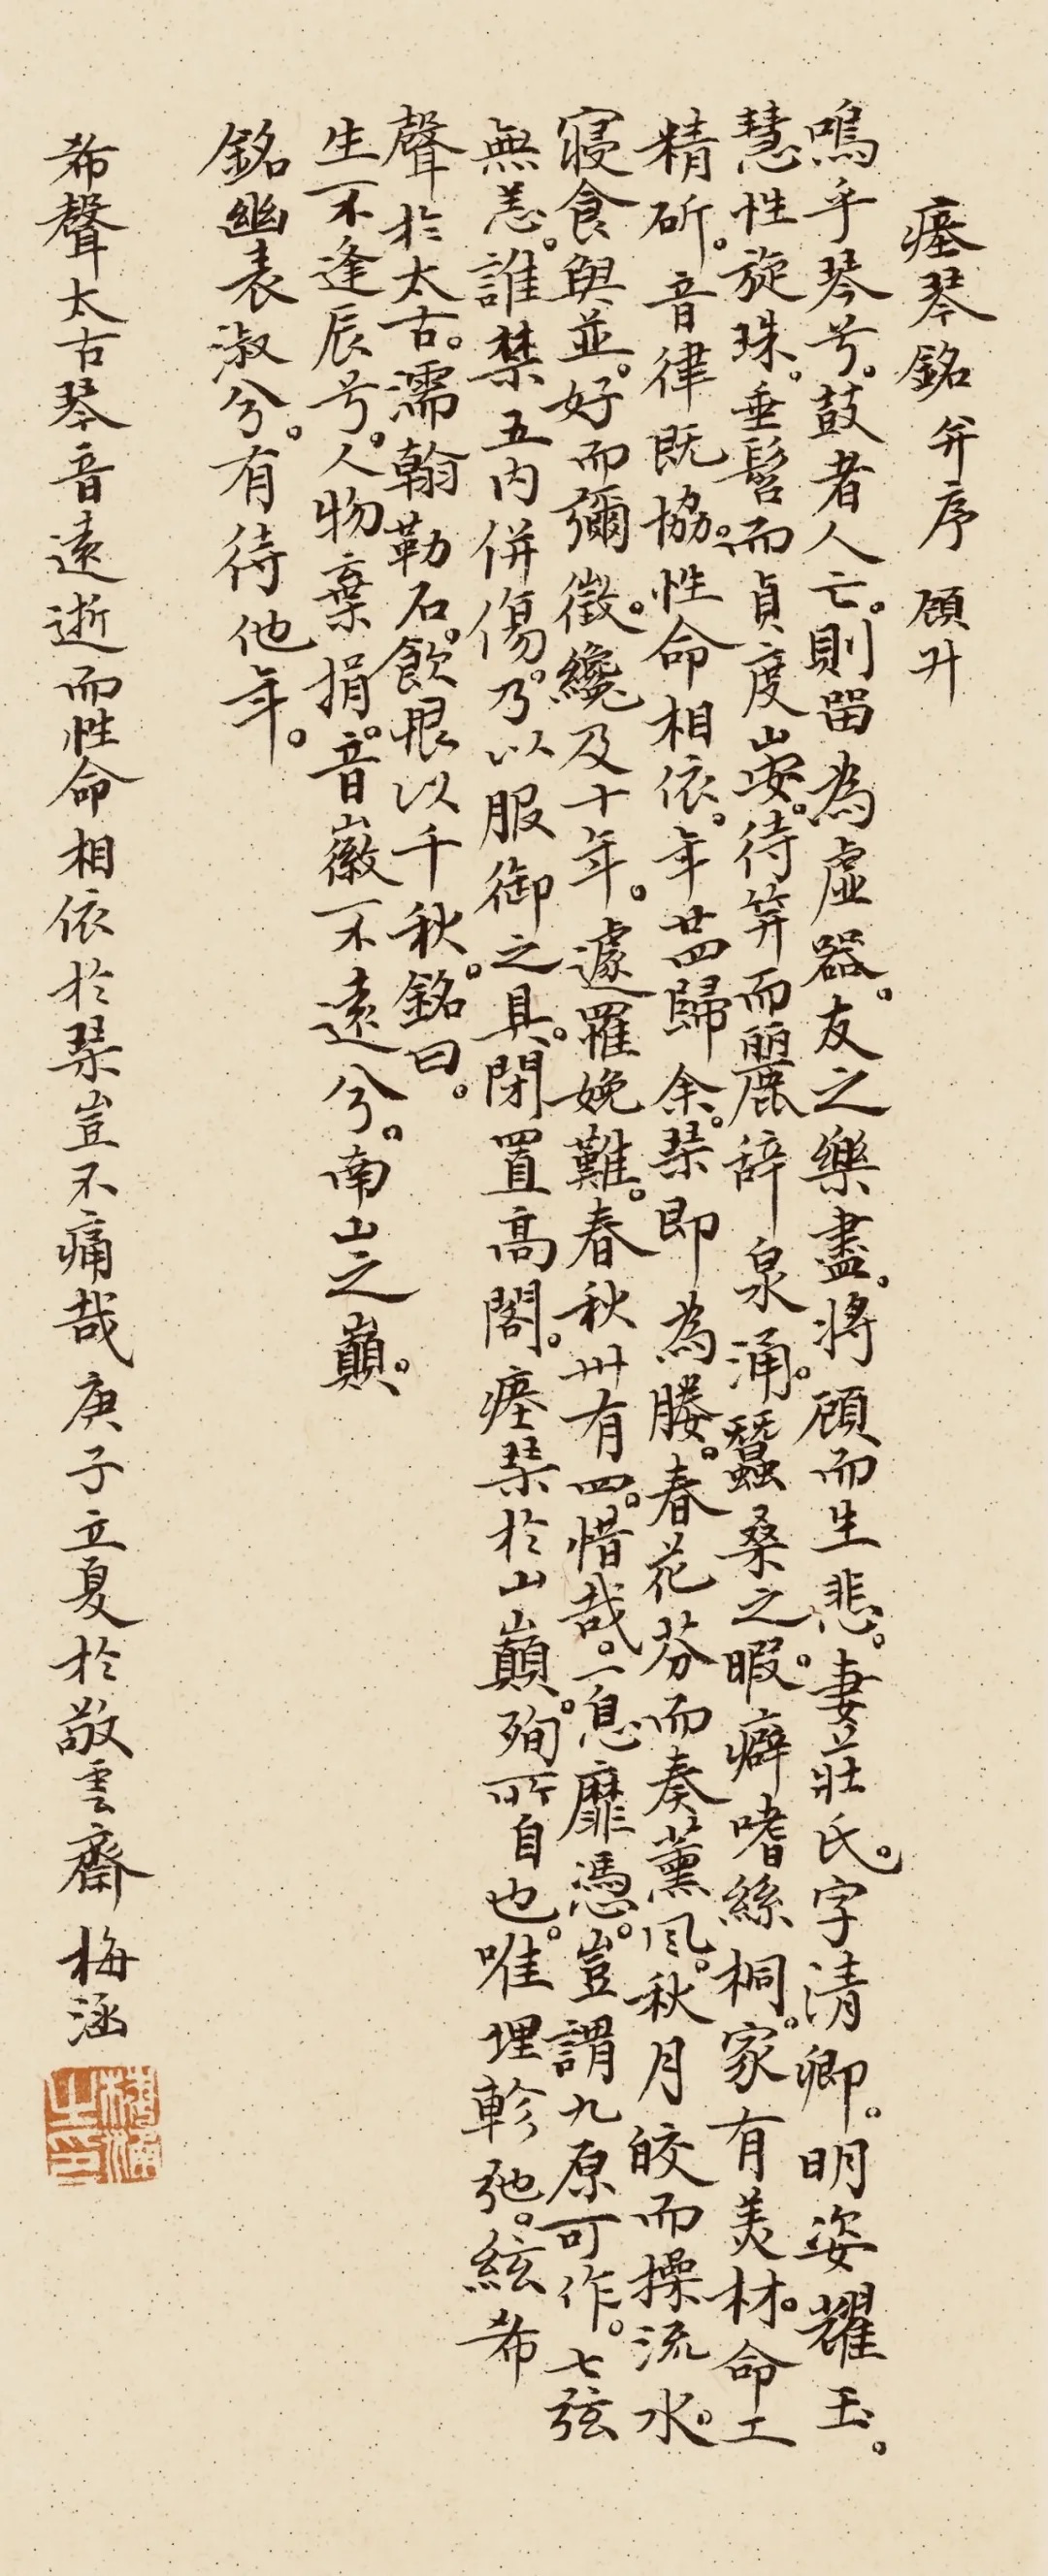 瘞琴銘并序 顧升
嗚乎琴兮。鼓者人亡。則留為虛器。友之樂盡。將顧而生悲。妻莊氏。字清卿。明姿耀玉。
慧性旋珠。垂髫而貞度山安。待筓而麗辞泉涌。蠶桑之暇。癖嗜絲桐。家有美材。命工
精斫。音律既協。性命相依。年廿四歸余。琴即為媵。春花芬而奏薰風。秋月皎而操流水。
寢食與並。好而彌徵。纔及十年。遽罹娩難。春秋卅有四。惜哉。一息靡憑。豈謂九原可作。七弦
無恙。誰禁五內併傷。乃以服御之具。閉置高閣。瘞琴於山巔。殉所自也。唯埋軫弛。絃希
聲於太古。濡翰勒石。飲恨以千秋。銘曰。
生不逢辰兮。人物棄捐。音徽不遠兮。南山之巔。
銘幽表淑兮。有待他年。
希聲太古琴音遠逝而性命相依於琴豈不痛哉庚子立夏於敬雲齋 梅涵
梅涵之印